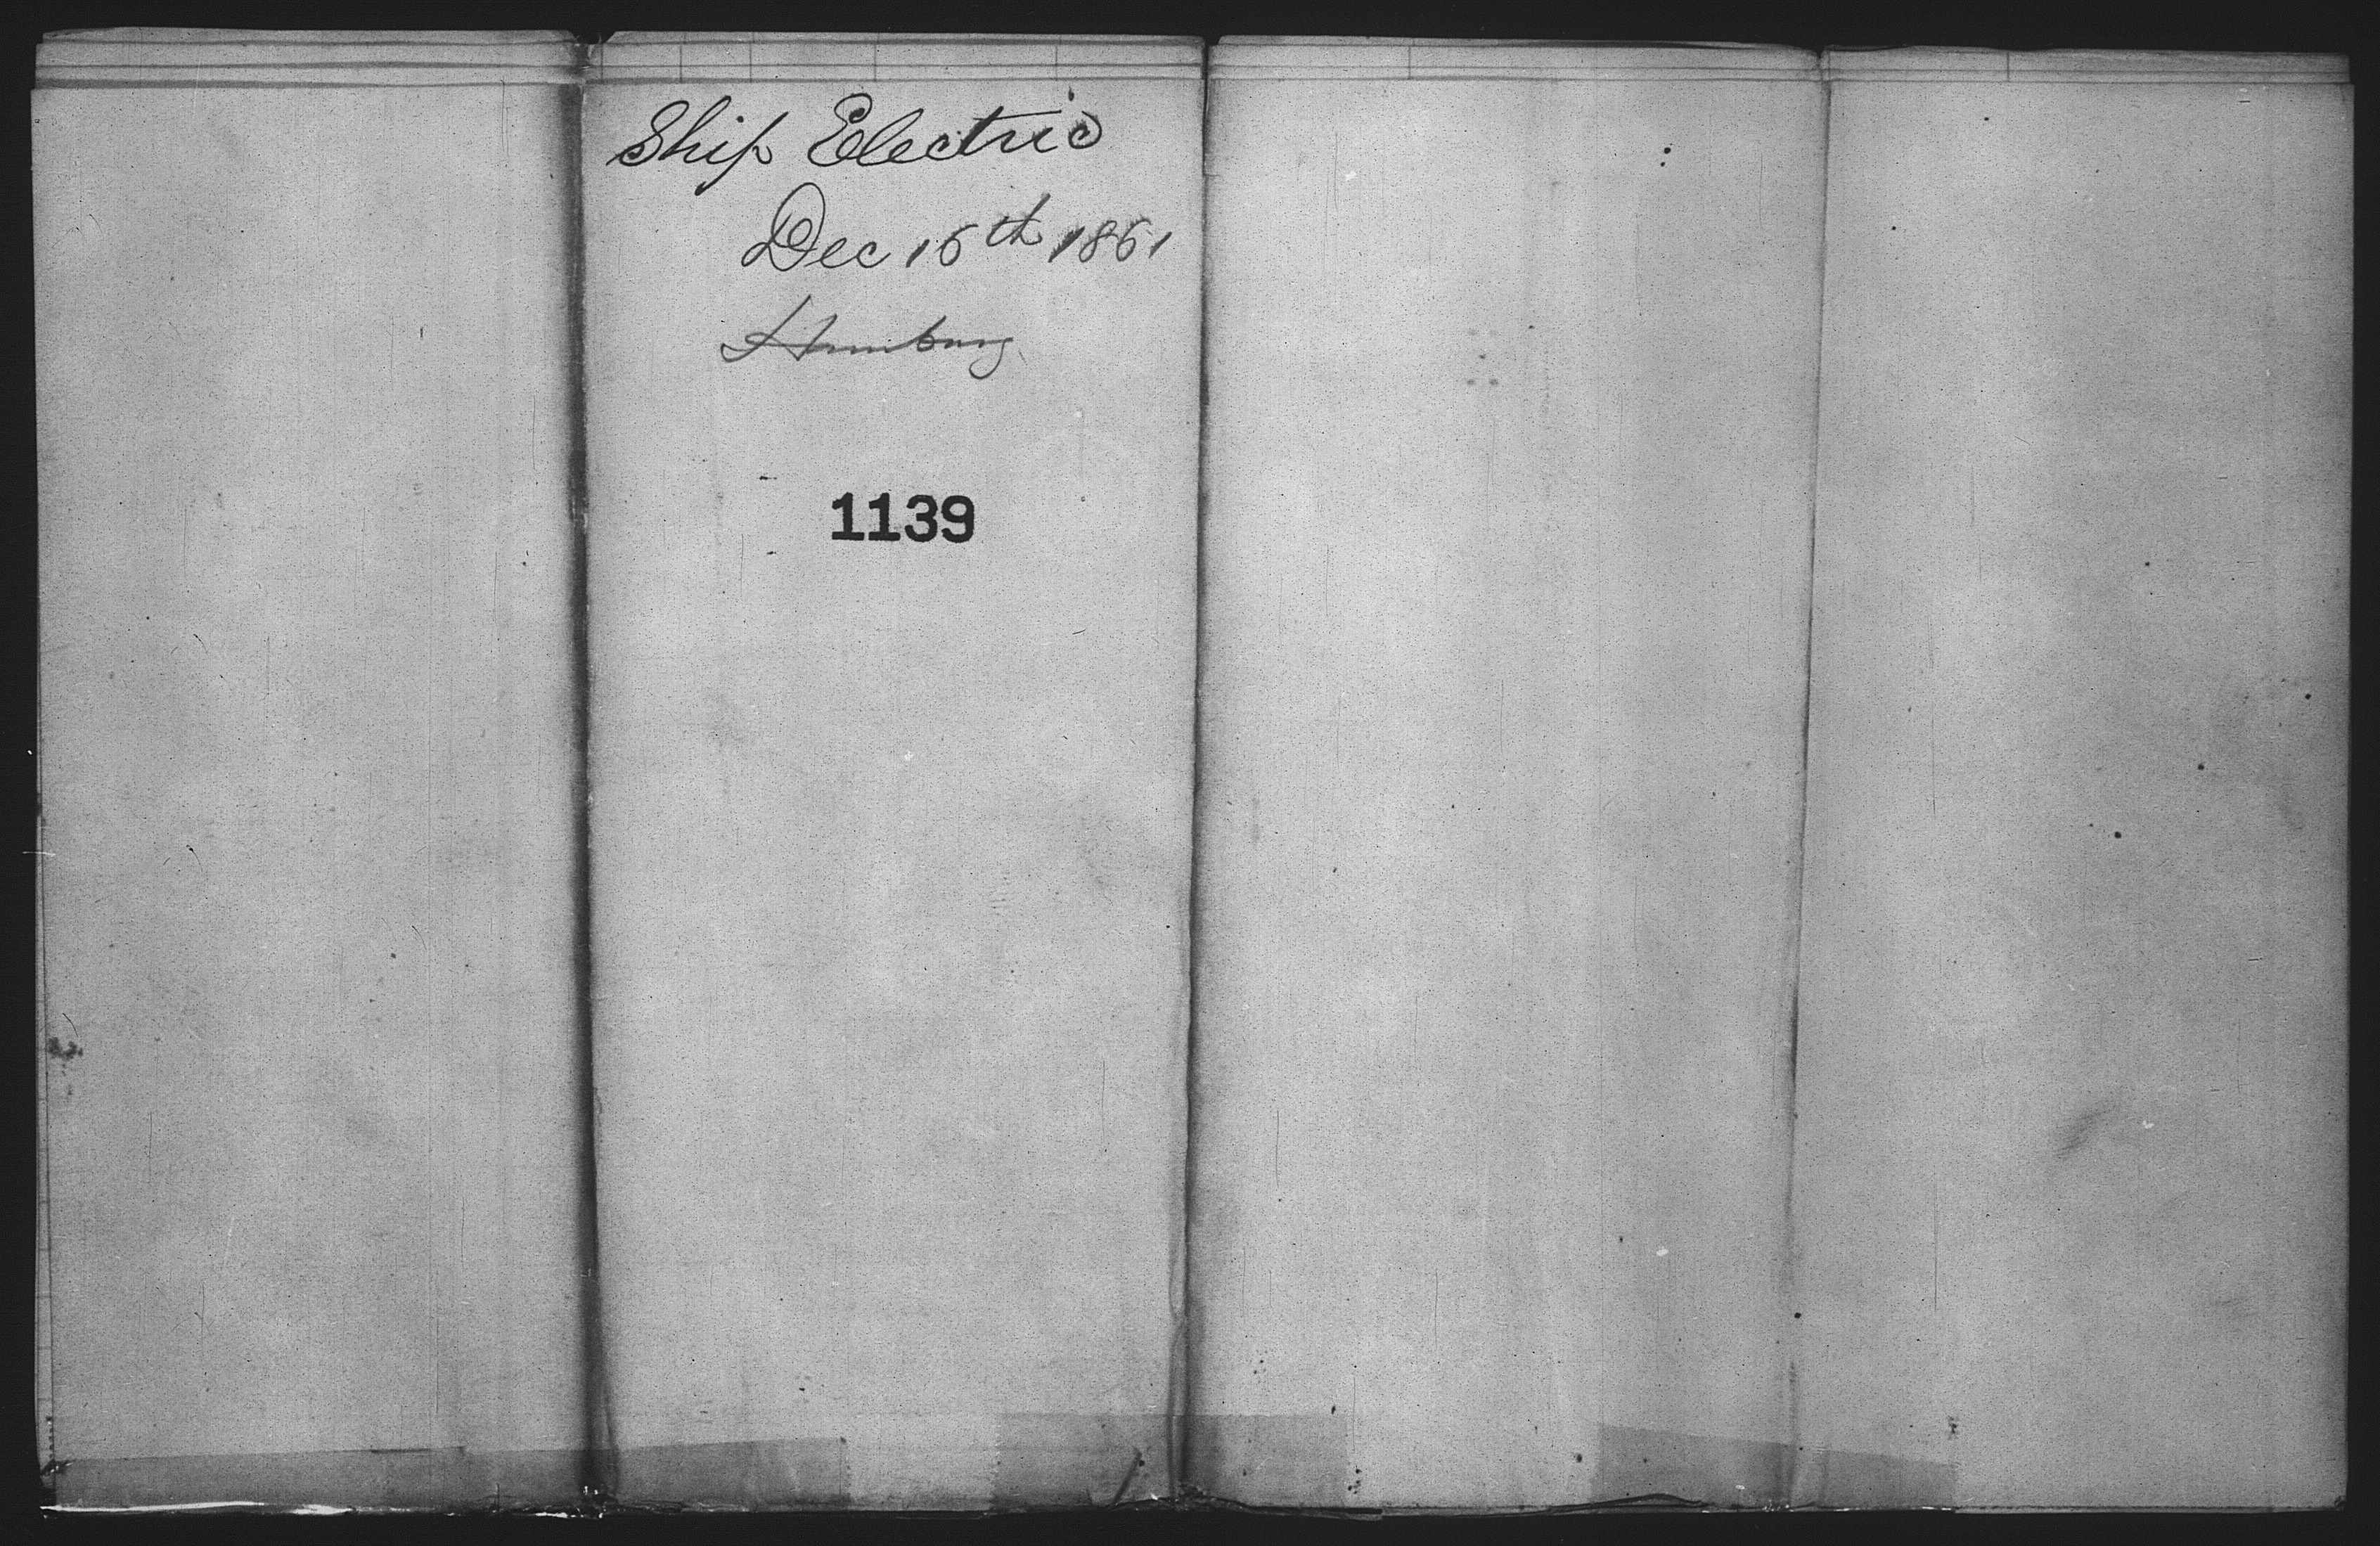 Ship Electric
Dec 16th 1861
Hamburg
1139